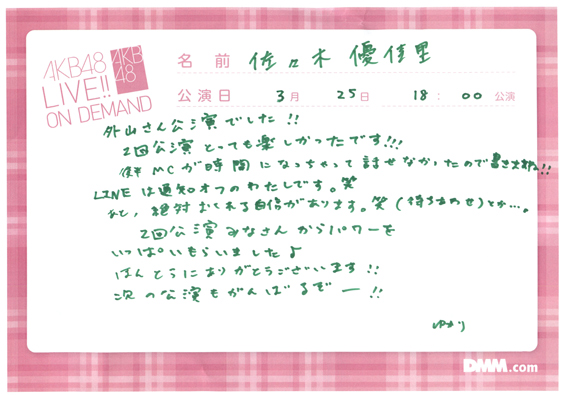 AKB48
LIVE!!
ON DEMAND
AKB
48
名前 佐々木 優佳里
公演日 3月 25日 18:00 公演
外山さん公演でした!!
2回公演 とっても楽しかったです!!!
後半 MCが時間になっちゃって話せなかったので書きますね!!
LINEは通知オフのわたしです。笑
あと、絶対おくれる自信があります。笑(待ち合わせ)とか…。
2回公演 みなさんからパワーを
いっぱいもらいましたよ
ほんとうにありがとうございます!!
次の公演もがんばるぞー!!
ゆかり
DMM.com